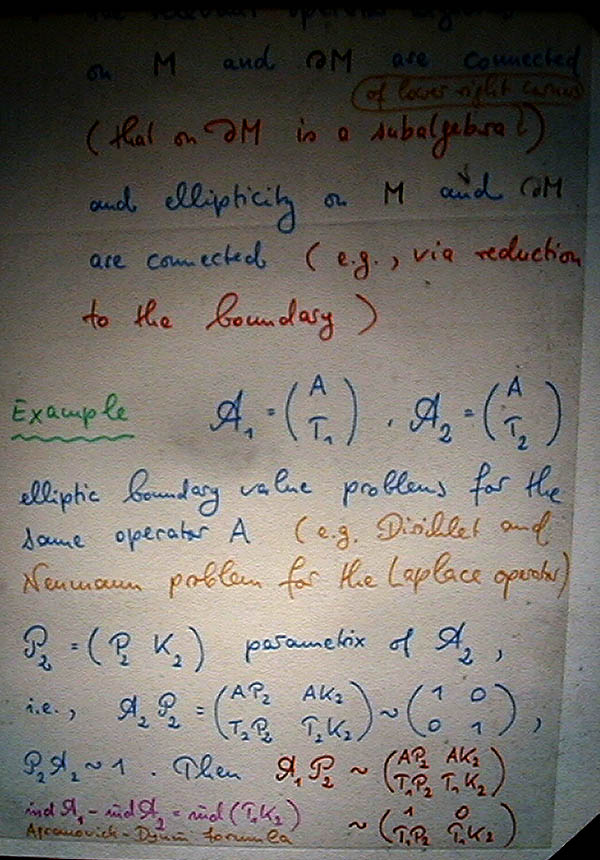 the relevant operator algebras
on M and ∂M are connected
(of lower right corners
(that on ∂M is a subalgebra!)
and ellipticity on M and ∂M
are connected (e.g., via reduction
to the boundary)
Example 𝒜₁ = (A T₁), 𝒜₂ = (A T₂)
elliptic boundary value problems for the
same operator A (e.g. Dirichlet and
Neumann problem for the Laplace operator)
𝒫₂ = (P₂ K₂) parametrix of 𝒜₂,
i.e., 𝒜₂ 𝒫₂ = (AP₂ AK₂ T₂P₂ T₂K₂) ~ (1 0 0 1),
𝒫₂𝒜₂ ~ 1. Then 𝒜₁ 𝒫₂ ~ (AP₂ AK₂ T₁P₂ T₁K₂)
ind 𝒜₁ - ind 𝒜₂ = ind (T₁K₂) ~ (1 0 T₁P₂ T₁K₂)
Agranovich-Dynin formula